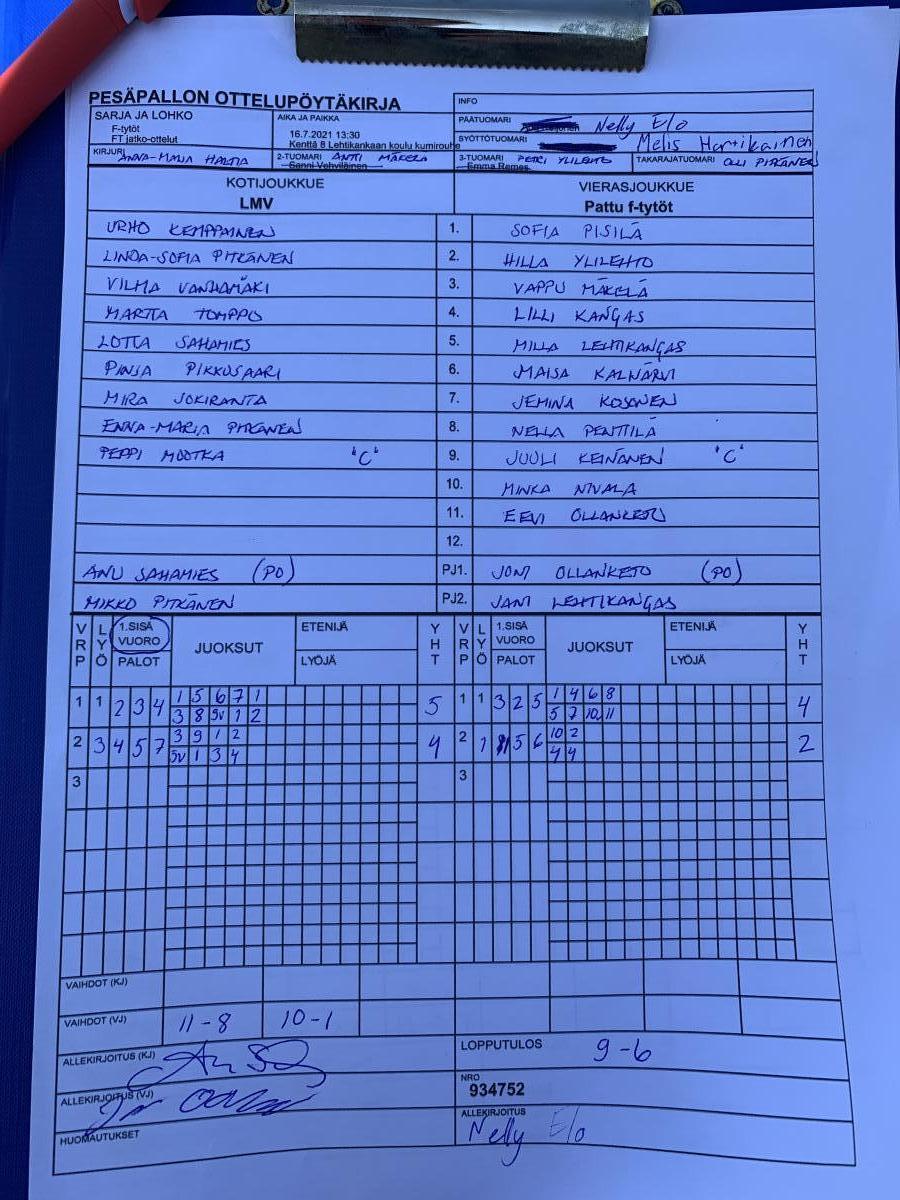 PESÄPALLON OTTELUPÖYTÄKIRJA
INFO
SARJA JA LOHKO
F-tytöt
FT jatko-ottelut
AIKA JA PAIKKA
16.7.2021 13:30
Kenttä 8 Lehtikankaan koulu kumirouhe
PÄÄTUOMARI Nelly Elo
SYÖTTÖTUOMARI Melis Hartikainen
KIRJURI ANNA-MAIJA HALTIA
2-TUOMARI ANTTI MÄKELÄ
Sanni Vehviläinen
3-TUOMARI PETRI YLILEHTO
Emma Remes
TAKARAJATUOMARI OLLI PITKÄNEN
KOTIJOUKKUE
LMV
VIERASJOUKKUE
Pattu f-tytöt
URHO KEMPPAINEN 1. SOFIA PISILÄ
LINDA-SOFIA PITKÄNEN 2. HILLA YLILEHTO
VILMA VANHAMÄKI 3. VAPPU MÄKELÄ
MARTTA TOMPPO 4. LILLI KANGAS
LOTTA SAHAMIES 5. MILLA LEHTIKANGAS
PINJA PIKKUSAARI 6. MAISA KALNÄRVI
MIRA JOKIRANTA 7. JEMINA KOSONEN
ENNA-MARIA PITKÄNEN 8. NELLA PENTTILÄ
PEPPI MOOTKA "C" 9. JUULI KEINÄNEN "C"
10. MINKA NIVALA
11. EEVI OLLANKETO
12.
ANU SAHAMIES (PO) PJ1. JONI OLLANKETO (PO)
MIKKO PITKÄNEN PJ2. JANI LEHTIKANGAS
VRP LYÖ 1.SISÄ VUORO PALOT JUOKSUT ETENIJÄ LYÖJÄ YHT VRP LYÖ 1.SISÄ VUORO PALOT JUOKSUT ETENIJÄ LYÖJÄ YHT
1 1 2 3 4 1 5 6 7 1 5 1 1 3 2 5 1 4 6 8 4
3 8 5V 1 2 5 7 10 11
2 3 4 5 7 3 9 1 2 4 2 1 5 6 10 2 2
5V 1 3 4 4 4
3 3
VAIHDOT (KJ)
VAIHDOT (VJ) 11-8 10-1
ALLEKIRJOITUS (KJ)
LOPPUTULOS 9-6
ALLEKIRJOITUS (VJ)
NRO
934752
HUOMAUTUKSET
ALLEKIRJOITUS
Nelly Elo